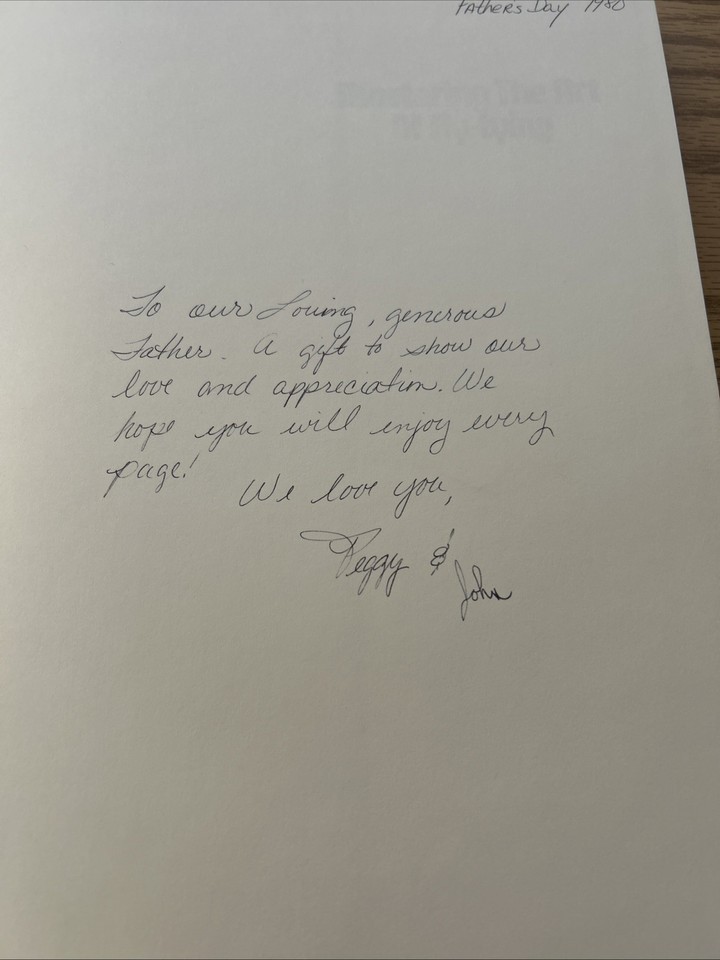 Father's Day 1980
Mastering The Art
of Fly-tying
To our Loving, generous
Father. A gift to show our
love and appreciation. We
hope you will enjoy every
page!
We love you,
Peggy &
John